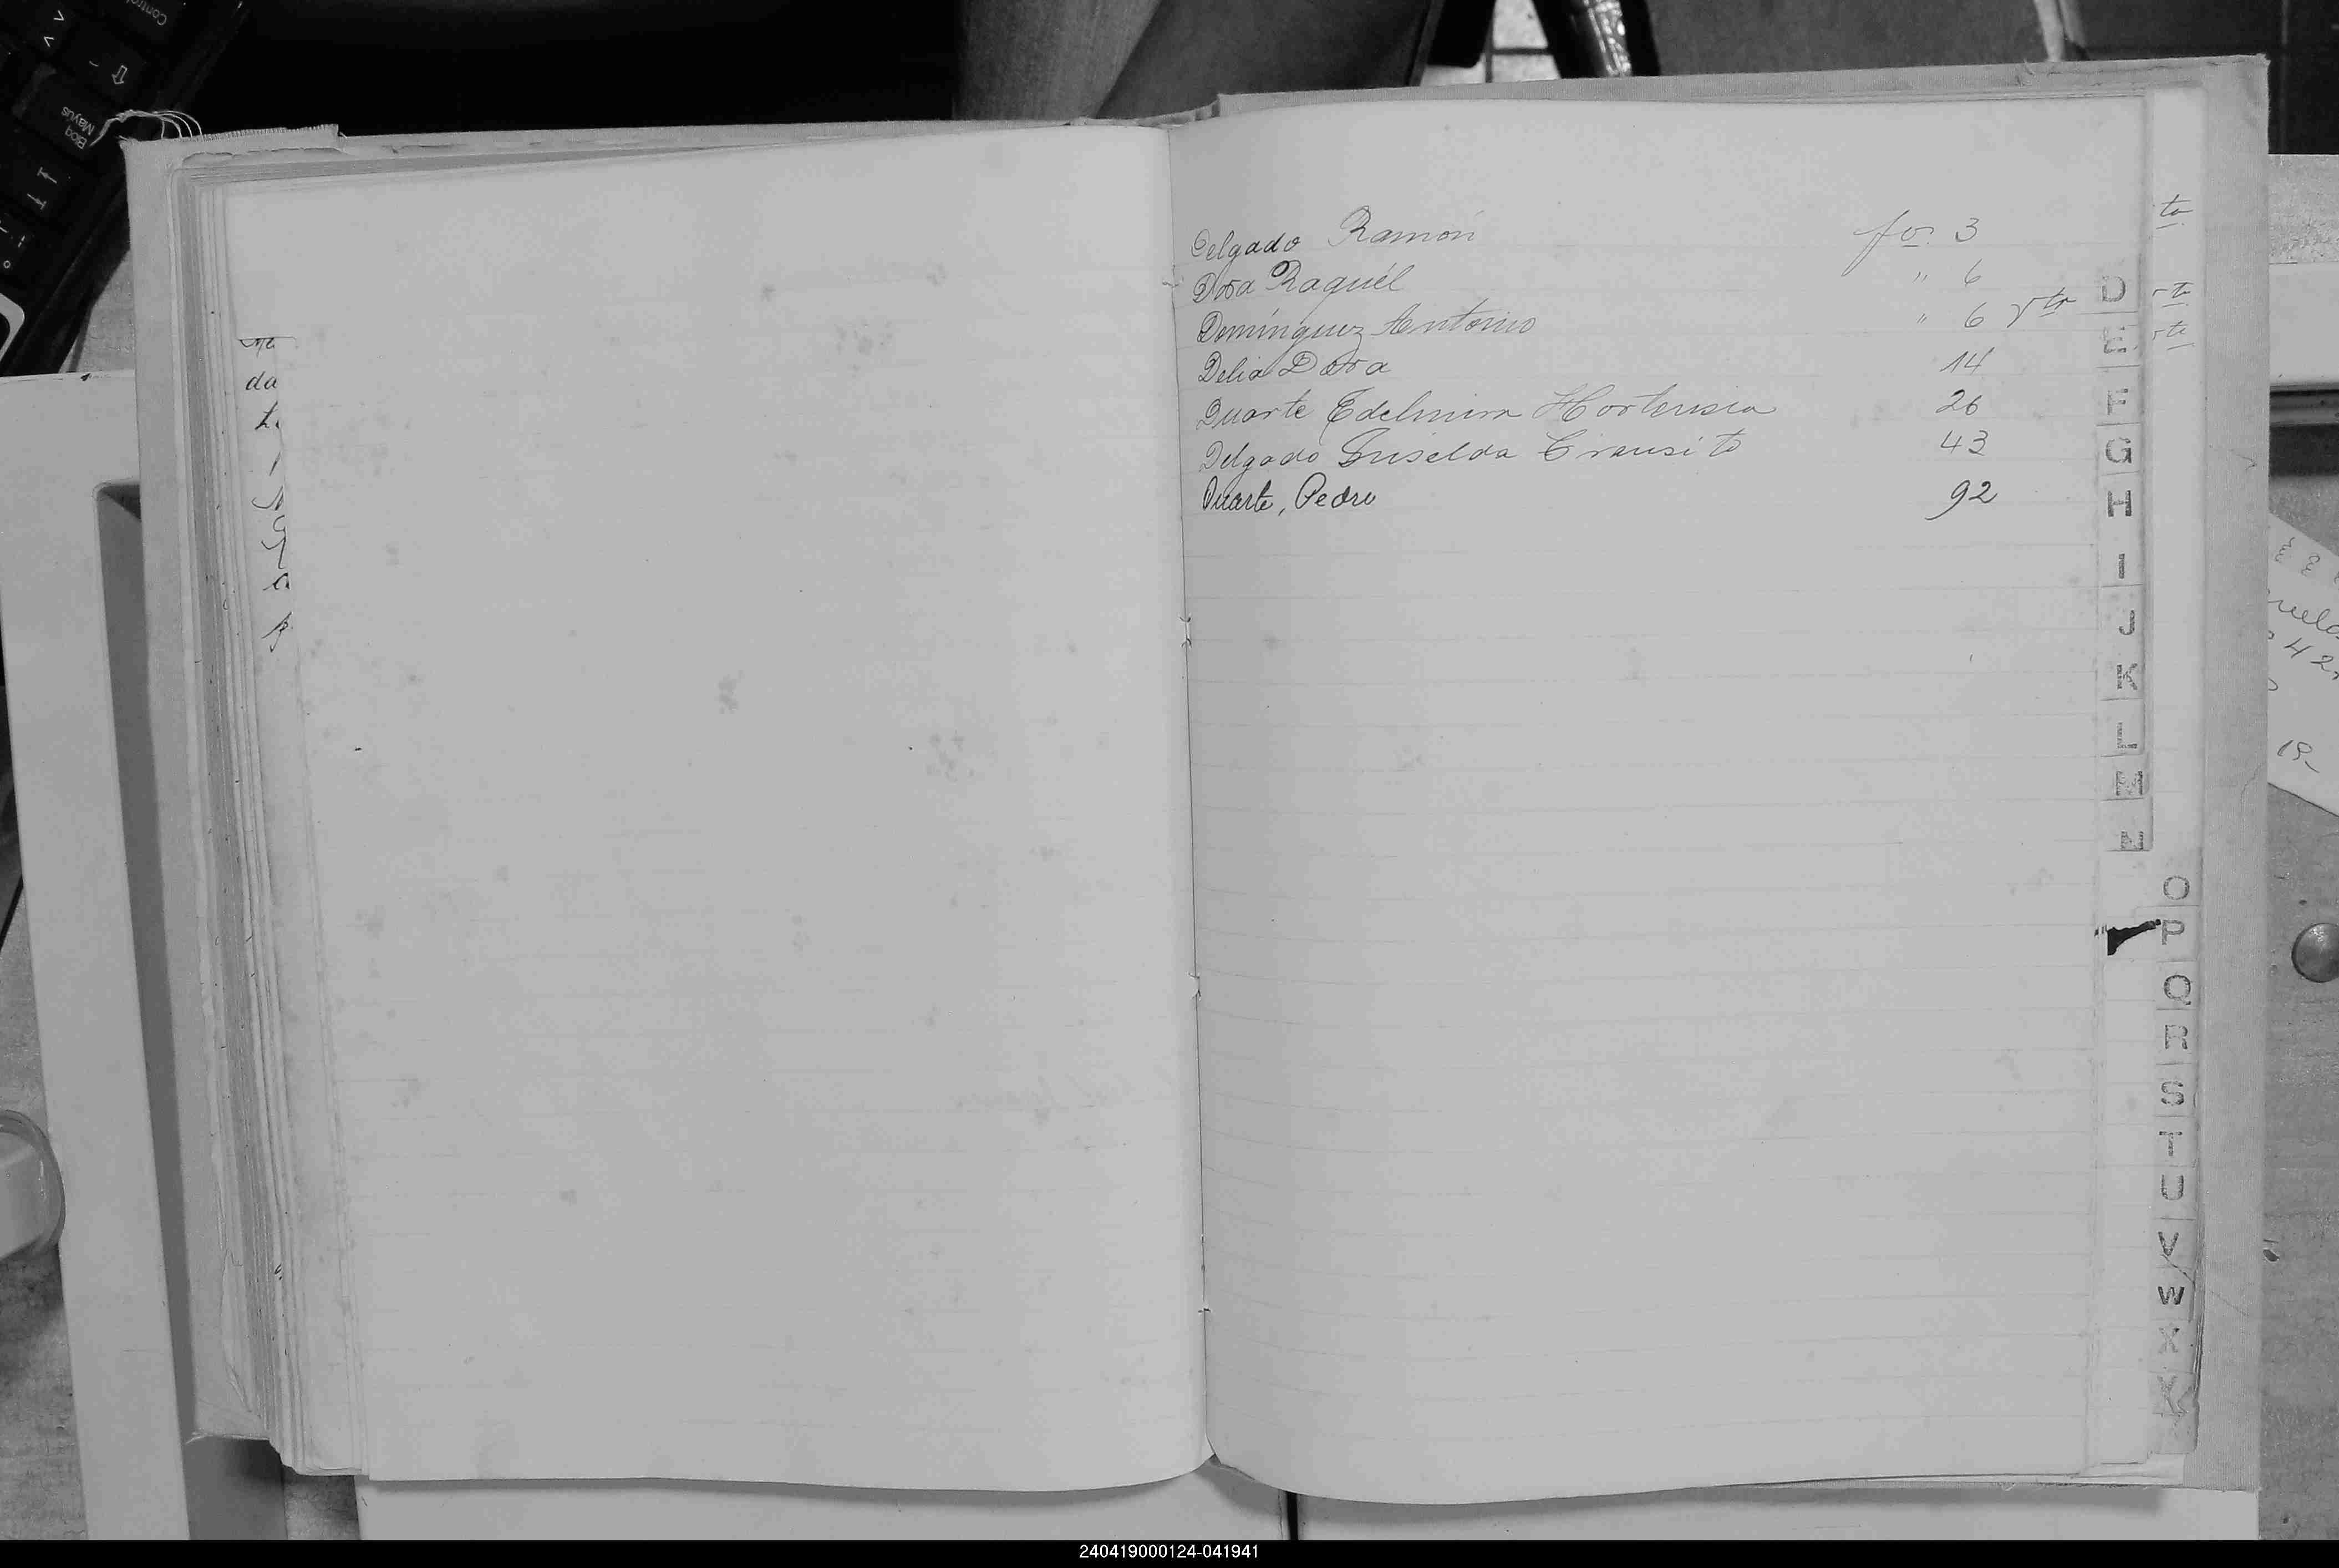 Delgado Ramón fo. 3
Dora Raquél " 6
Domínguez Antonio " 6 vto
Delia Dora 14
Duarte Edelmira Hortensia 26
Delgado Griselda Transito 43
Duarte, Pedro 92
to
rto
rto
D
E
F
G
H
I
J
K
L
M
N
O
P
Q
R
S
T
U
V
W
X
Y
da
Control
Bloq
Mayus
19
240419000124-041941